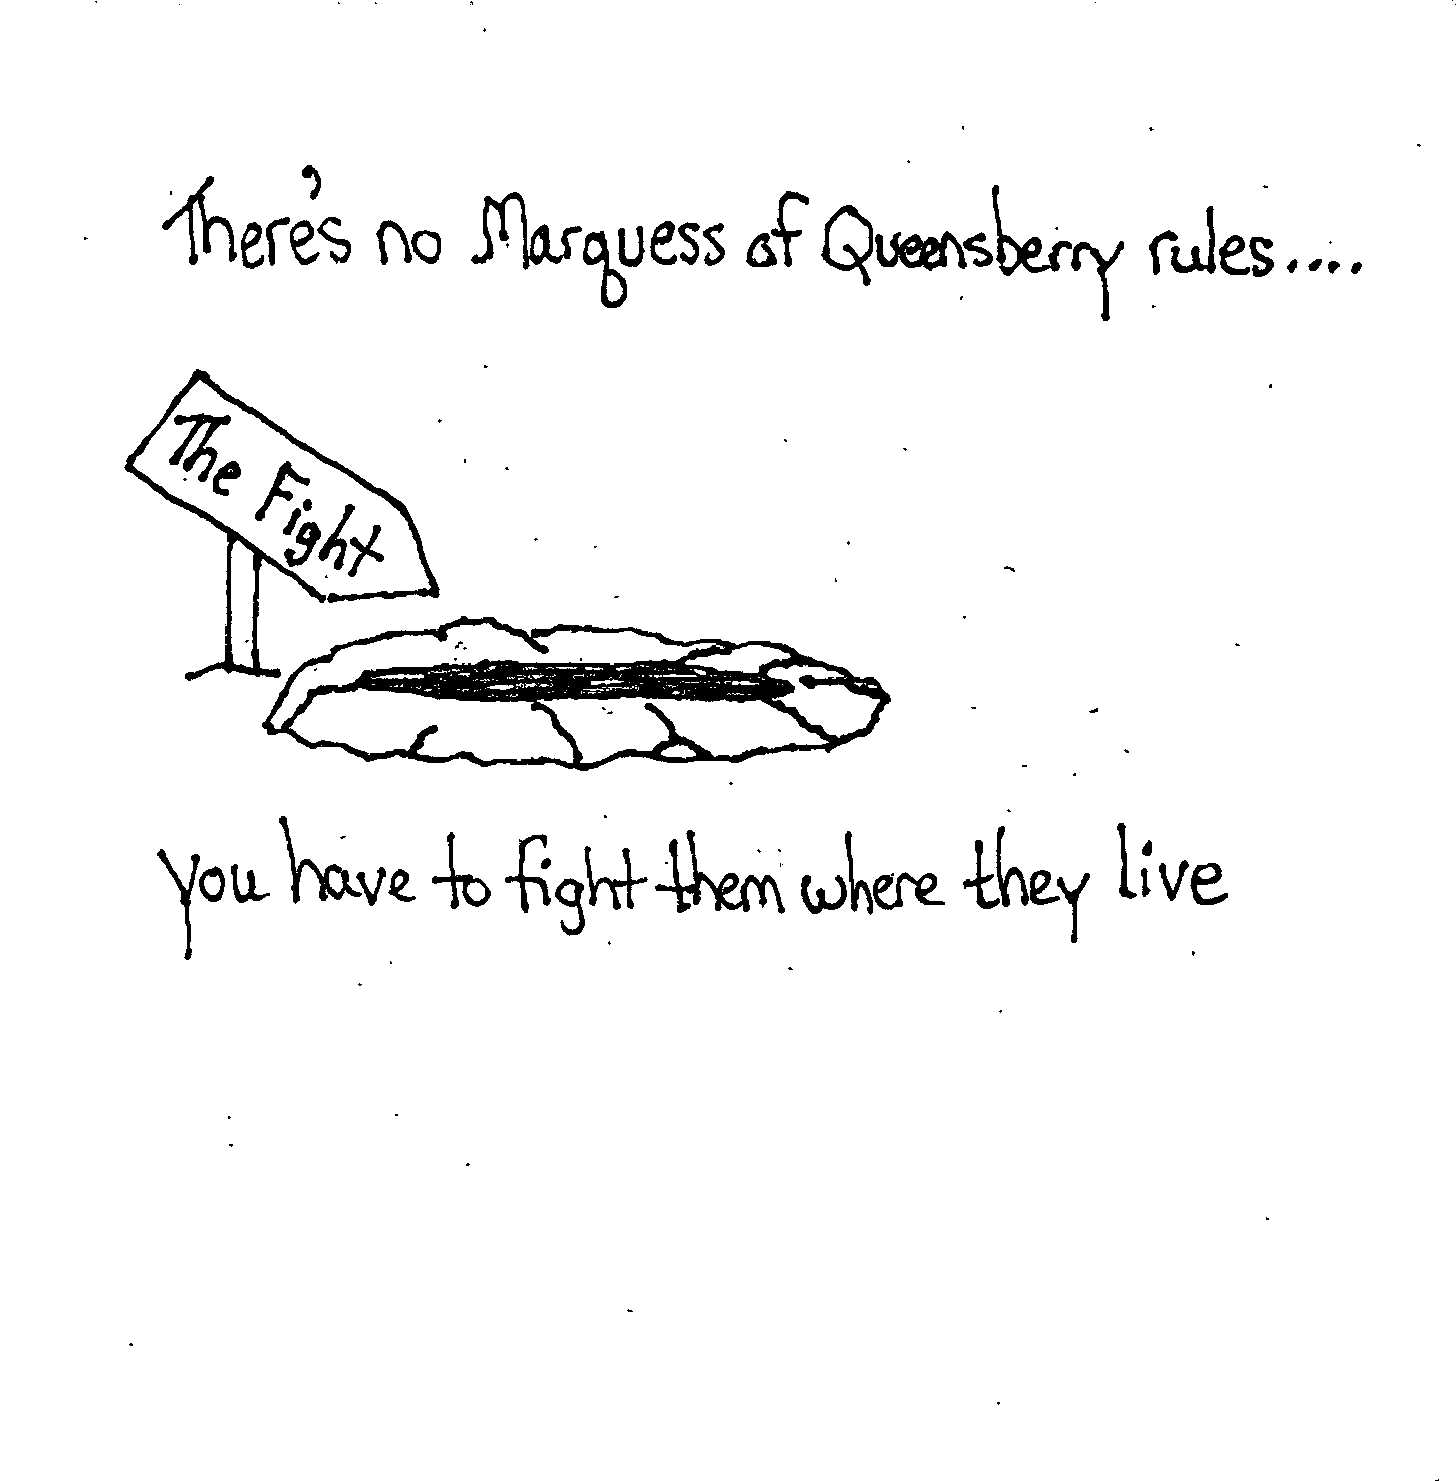 There's no Marquess of Queensberry rules....
The Fight
you have to fight them where they live